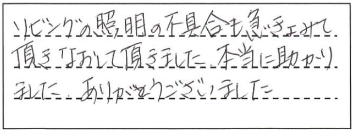 リビングの照明の不具合も急ぎ止めて
頂きなおして頂きました 本当に助かり
ました ありがとうございました